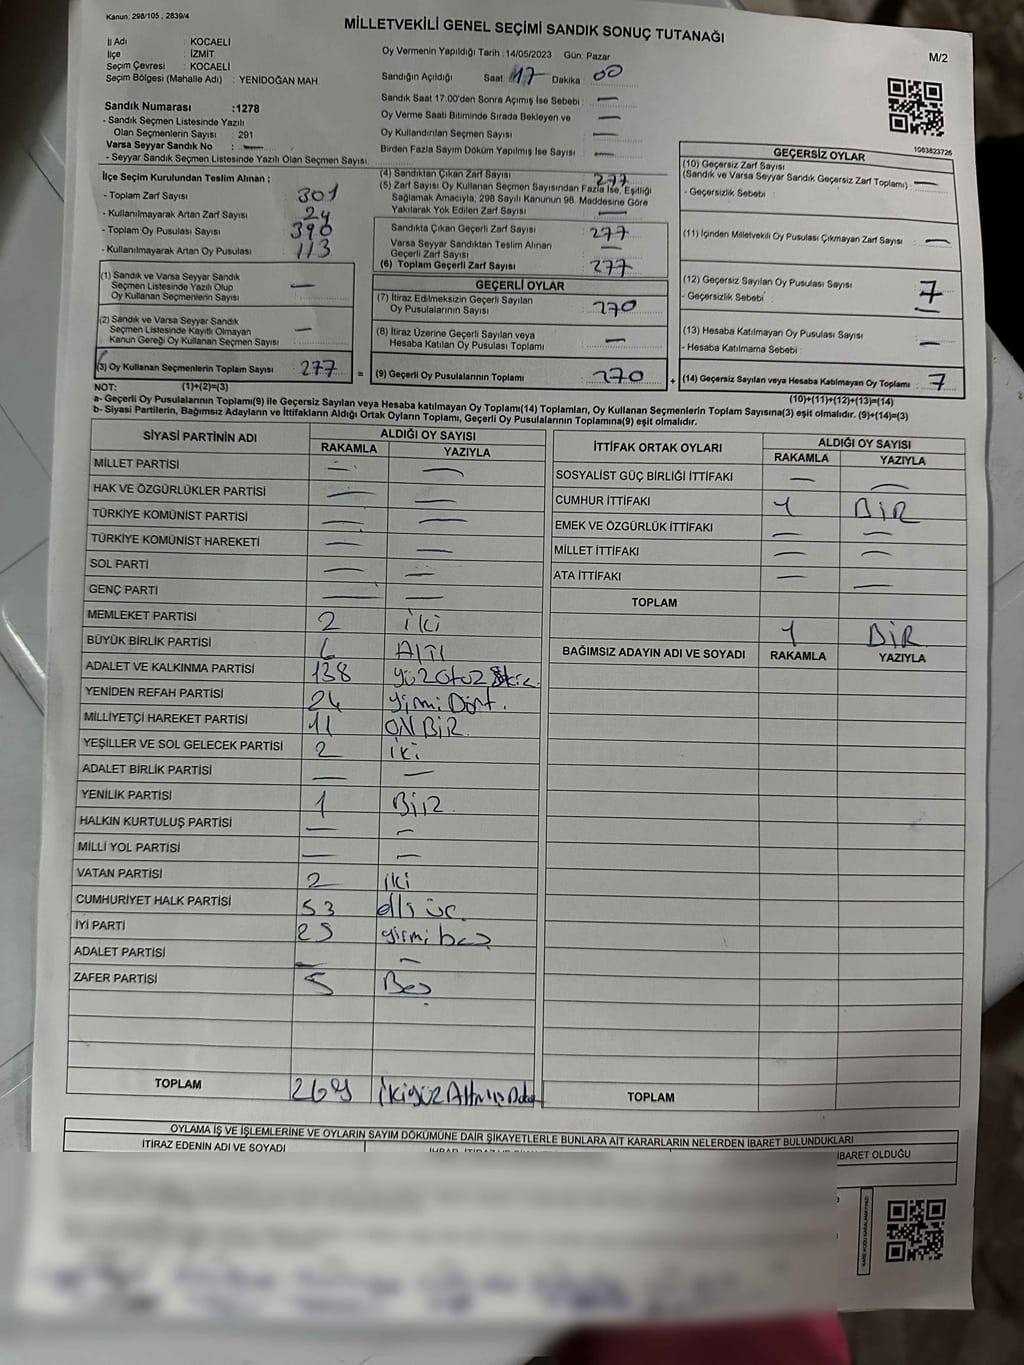 Kanun: 298/105 , 2839/4
MİLLETVEKİLİ GENEL SEÇİMİ SANDIK SONUÇ TUTANAĞI
M/2
İl Adı : KOCAELİ
İlçe : İZMİT
Seçim Çevresi : KOCAELİ
Seçim Bölgesi (Mahalle Adı) : YENİDOĞAN MAH.
Oy Vermenin Yapıldığı Tarih :14/05/2023 Gün: Pazar
Sandığın Açıldığı Saat 17 Dakika 00
Sandık Saat 17:00'den Sonra Açımış İse Sebebi : —
Oy Verme Saati Bitiminde Sırada Bekleyen ve —
Oy Kullandırılan Seçmen Sayısı : —
Birden Fazla Sayım Döküm Yapılmış İse Sayısı : —
Sandık Numarası :1278
- Sandık Seçmen Listesinde Yazılı
Olan Seçmenlerin Sayısı : 291
Varsa Seyyar Sandık No : —
- Seyyar Sandık Seçmen Listesinde Yazılı Olan Seçmen Sayısı
İlçe Seçim Kurulundan Teslim Alınan ;
- Toplam Zarf Sayısı : 301
- Kullanılmayarak Artan Zarf Sayısı : 24
- Toplam Oy Pusulası Sayısı : 390
- Kullanılmayarak Artan Oy Pusulası : 113
(1) Sandık ve Varsa Seyyar Sandık
Seçmen Listesinde Yazılı Olup
Oy Kullanan Seçmenlerin Sayısı : —
(2) Sandık ve Varsa Seyyar Sandık
Seçmen Listesinde Kayıtlı Olmayan
Kanun Gereği Oy Kullanan Seçmen Sayısı : —
(3) Oy Kullanan Seçmenlerin Toplam Sayısı : 277
(4) Sandıktan Çıkan Zarf Sayısı : 277
(5) Zarf Sayısı Oy Kullanan Seçmen Sayısından Fazla İse, Eşitliği
Sağlamak Amacıyla; 298 Sayılı Kanunun 98. Maddesine Göre
Yakılarak Yok Edilen Zarf Sayısı : —
Sandıkta Çıkan Geçerli Zarf Sayısı : 277
Varsa Seyyar Sandıktan Teslim Alınan
Geçerli Zarf Sayısı : —
(6) Toplam Geçerli Zarf Sayısı : 277
GEÇERLİ OYLAR
(7) İtiraz Edilmeksizin Geçerli Sayılan
Oy Pusulalarının Sayısı : 270
(8) İtiraz Üzerine Geçerli Sayılan veya
Hesaba Katılan Oy Pusulası Toplamı : —
= (9) Geçerli Oy Pusulalarının Toplamı : 270
1083823726
GEÇERSİZ OYLAR
(10) Geçersiz Zarf Sayısı
(Sandık ve Varsa Seyyar Sandık Geçersiz Zarf Toplamı) : —
- Geçersizlik Sebebi :
(11) İçinden Milletvekili Oy Pusulası Çıkmayan Zarf Sayısı : —
(12) Geçersiz Sayılan Oy Pusulası Sayısı : 7
- Geçersizlik Sebebi : —
(13) Hesaba Katılmayan Oy Pusulası Sayısı
- Hesaba Katılmama Sebebi : —
+ (14) Geçersiz Sayılan veya Hesaba Katılmayan Oy Toplamı : 7
NOT: (1)+(2)=(3)
(10)+(11)+(12)+(13)=(14)
a- Geçerli Oy Pusulalarının Toplamı(9) ile Geçersiz Sayılan veya Hesaba katılmayan Oy Toplamı(14) Toplamları, Oy Kullanan Seçmenlerin Toplam Sayısına(3) eşit olmalıdır. (9)+(14)=(3)
b- Siyasi Partilerin, Bağımsız Adayların ve İttifakların Aldığı Ortak Oyların Toplamı, Geçerli Oy Pusulalarının Toplamına(9) eşit olmalıdır.
SİYASİ PARTİNİN ADI ALDIĞI OY SAYISI
RAKAMLA YAZIYLA
MİLLET PARTİSİ — —
HAK VE ÖZGÜRLÜKLER PARTİSİ — —
TÜRKİYE KOMÜNİST PARTİSİ — —
TÜRKİYE KOMÜNİST HAREKETİ — —
SOL PARTİ — —
GENÇ PARTİ — —
MEMLEKET PARTİSİ 2 iki
BÜYÜK BİRLİK PARTİSİ 6 AltI
ADALET VE KALKINMA PARTİSİ 138 yüz otuz sekiz
YENİDEN REFAH PARTİSİ 24 yirmi Dört.
MİLLİYETÇİ HAREKET PARTİSİ 11 ON BİR
YEŞİLLER VE SOL GELECEK PARTİSİ 2 iki
ADALET BİRLİK PARTİSİ — —
YENİLİK PARTİSİ 1 BİR.
HALKIN KURTULUŞ PARTİSİ — —
MİLLİ YOL PARTİSİ — —
VATAN PARTİSİ 2 iki
CUMHURİYET HALK PARTİSİ 53 elli üç
İYİ PARTİ 25 yirmi beş
ADALET PARTİSİ — —
ZAFER PARTİSİ 5 Beş
TOPLAM 269 ikiyüz Altmış Dokuz
İTTİFAK ORTAK OYLARI ALDIĞI OY SAYISI
RAKAMLA YAZIYLA
SOSYALİST GÜÇ BİRLİĞİ İTTİFAKI — —
CUMHUR İTTİFAKI 1 BİR
EMEK VE ÖZGÜRLÜK İTTİFAKI — —
MİLLET İTTİFAKI — —
ATA İTTİFAKI — —
TOPLAM 1 BİR
BAĞIMSIZ ADAYIN ADI VE SOYADI RAKAMLA YAZIYLA
TOPLAM
OYLAMA İŞ VE İŞLEMLERİNE VE OYLARIN SAYIM DÖKÜMÜNE DAİR ŞİKAYETLERLE BUNLARA AİT KARARLARIN NELERDEN İBARET BULUNDUKLARI
İTİRAZ EDENİN ADI VE SOYADI
İBARET OLDUĞU